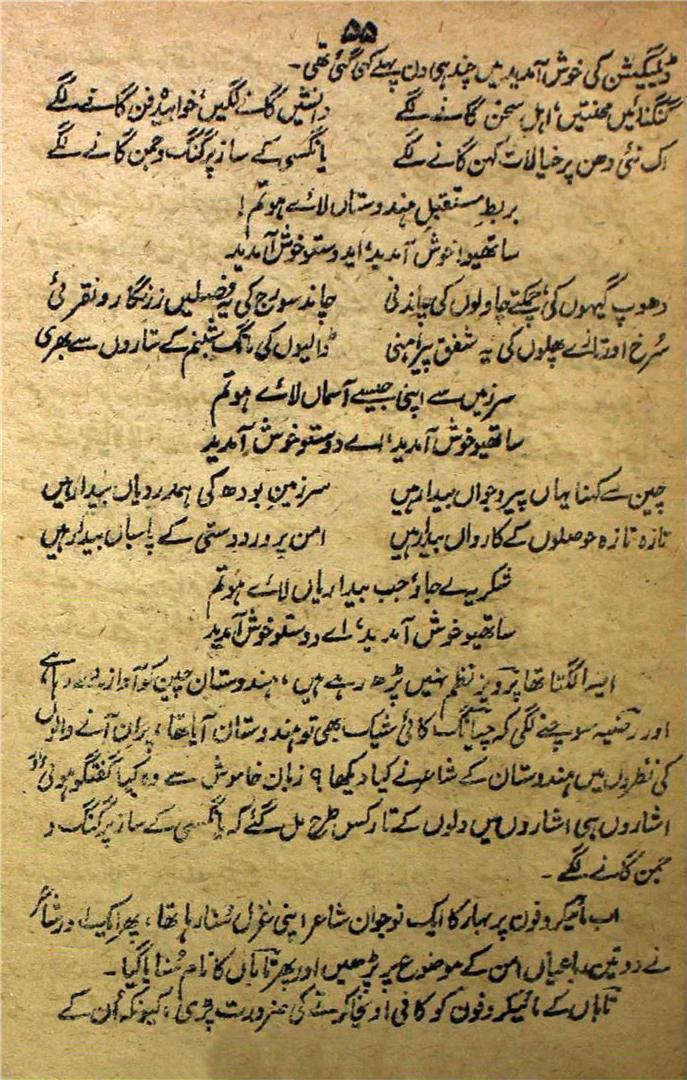 ۵۵
ڈیلیگیشن کی خوش آمدید میں چند ہی دن پہلے کہی گئی تھی۔
گنگنائیں محنتیں، اہل سخن گانے لگے دانشیں گانے لگیں، خوابیدہ فن گانے لگے
اک نئی دھن پر خیالات کہن گانے لگے یانگسی کے ساز پر گنگ و جمن گانے لگے
بربطِ مستقبلِ ہندوستاں لائے ہو تم!
ساتھیو! خوش آمدید، اے دوستو خوش آمدید
دھوپ گیہوں کی، چمکتے چاولوں کی چاندنی چاند سورج کی یہ فصلیں زرنگار و نقرئی
سرخ اور تازے پھلوں کی یہ شفق پیراہنی ڈالیوں کی مانگ شبنم کے ستاروں سے بھری
سرزمیں سے اپنی جیسے آسماں لائے ہو تم
ساتھیو خوش آمدید، اے دوستو خوش آمدید
چین سے کہنا یہاں پیر و جواں بیدار ہیں سرزمینِ بودھ کی ہمدردیاں بیدار ہیں
تازہ تازہ حوصلوں کے کارواں بیدار ہیں امن پرور دوستی کے پاسباں بیدار ہیں
شکریہ لے جاؤ جب بیداریاں لائے ہو تم
ساتھیو خوش آمدید، اے دوستو خوش آمدید
ایسا لگتا تھا پرویز نظم نہیں پڑھ رہے ہیں، ہندوستان چین کو آواز دے رہا ہے،
اور رضیہ سوچنے لگی کہ چیانگ کائی شیک بھی تو ہندوستان آیا تھا، پر ان آنے والوں
کی نظروں میں ہندوستان کے شاعر نے کیا دیکھا؟ زبان خاموش سے وہ کیا گفتگو ہوئی اور
اشاروں ہی اشاروں میں دلوں کے تار کس طرح مل گئے کہ یانگسی کے ساز پر گنگ و
جمن گانے لگے۔
اب مائیکروفون پر بہار کا ایک نوجوان شاعر اپنی غزل سنا رہا تھا، پھر ایک اور شاعر
نے دو تین رباعیاں امن کے موضوع پر پڑھیں اور پھر تاباں کا نام سنایا گیا۔
تاباں کے مائیکروفون کو کافی اونچا کرنے کی ضرورت پڑی، کیونکہ اُن کے